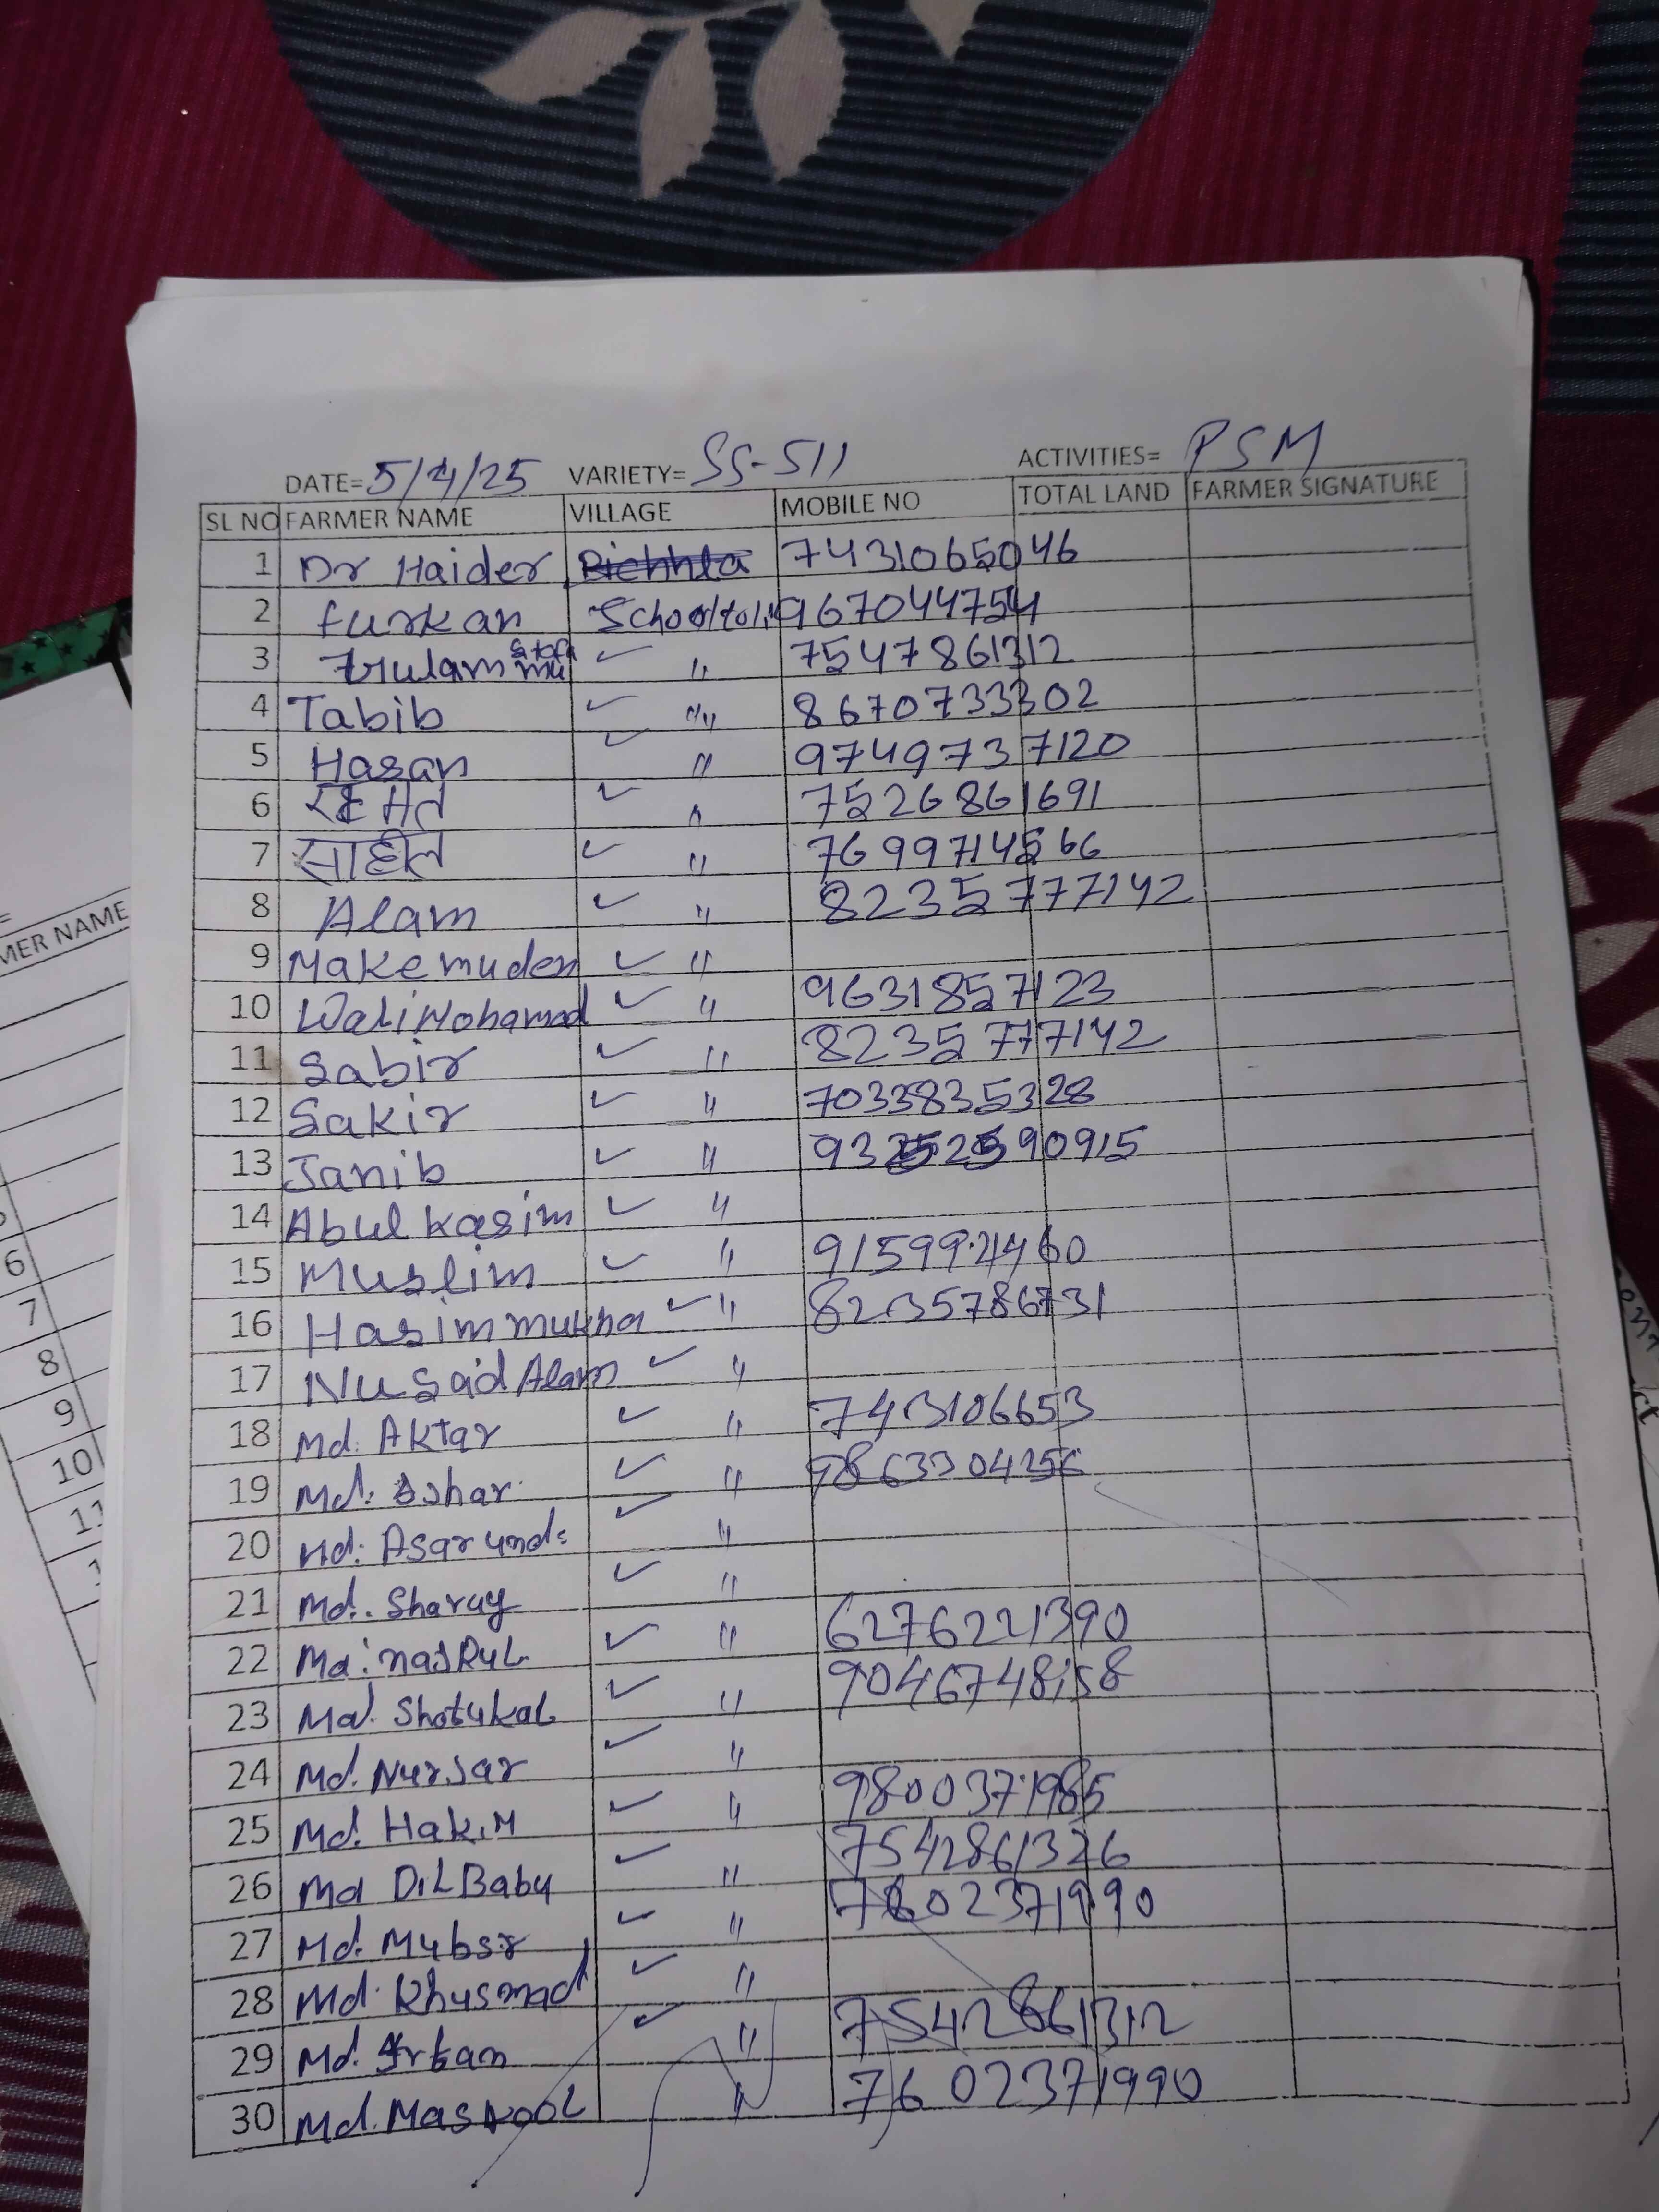 DATE= 5/4/25 VARIETY= SS-511 ACTIVITIES= PSM
SL NO FARMER NAME VILLAGE MOBILE NO TOTAL LAND FARMER SIGNATURE
1 Dr Haider 7431065046
2 furkan Schooltoli 967044754
3 7547861312
4 Tabib " 8670733302
5 Hasan " 9749737120
6 " 7526861691
7 साहील " 7699714566
8 Alam " 8235777142
9 Makemuden "
10 Wali Mohamad " 9631857123
11 Sabir " 8235777142
12 Sakir " 7033835328
13 Janib "
14 Abul kasim "
15 Muslim "
16 Hasim mukha " 8235786731
17 Nusad Alam "
18 Md. Aktar " 743106653
19 Md. " 9863304256
20 Md. "
21 Md. Sharuy "
22 Md. nasRul " 6276221390
23 Md. Shotukal " 9046748158
24 Md. Nursar "
25 Md. Hakim " 9800371985
26 Md DilBabu " 7542861326
27 Md. Mubsr " 7602371990
28 Md. Khusmad "
29 Md. Irfan " 7542861312
30 Md. Maskool " 7602371990
=
MER NAME
6
7
8
9
10
11